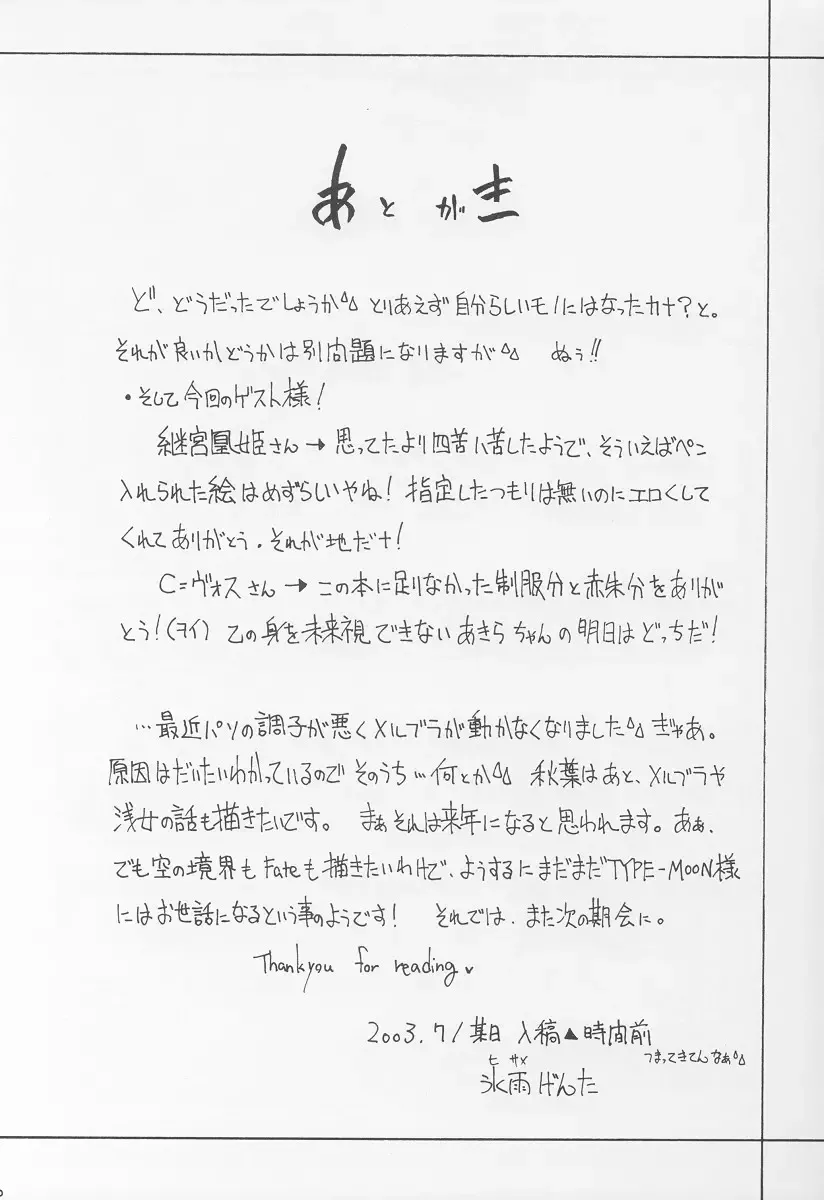 あとがき
ど、どうだったでしょうか^^; とりあえず自分らしいモノにはなったカナ?と。
それが良いかどうかは別問題になりますが^^; ぬぅ!!
・そして今回のゲスト様!
継宮凰姫さん → 思ってたより四苦八苦したようで、そういえばペン
入れられた絵はめずらしいやね! 指定したつもりは無いのにエロくして
くれてありがとう. それが地だナ!
C=ヴォスさん → この本に足りなかった制服分と赤朱分をありが
とう!(ヲイ) 乙の身を未来視できないあきらちゃんの明日はどっちだ!
…最近パソの調子が悪くメルブラが動かなくなりました^^; ぎゃあ。
原因はだいたいわかっているのでそのうち…何とか^^; 秋葉はあと、メルブラや
浅女の話も描きたいです。 まぁそれは来年になると思われます。あぁ、
でも空の境界もFateも描きたいわけで、ようするにまだまだTYPE-MOON様
にはお世話になるという事のようです! それでは、また次の期会に。
Thankyou for reading♥
2003. 7/某日 入稿▲時間前
つまってきてんなぁ^^;
ヒサメ
氷雨げんた